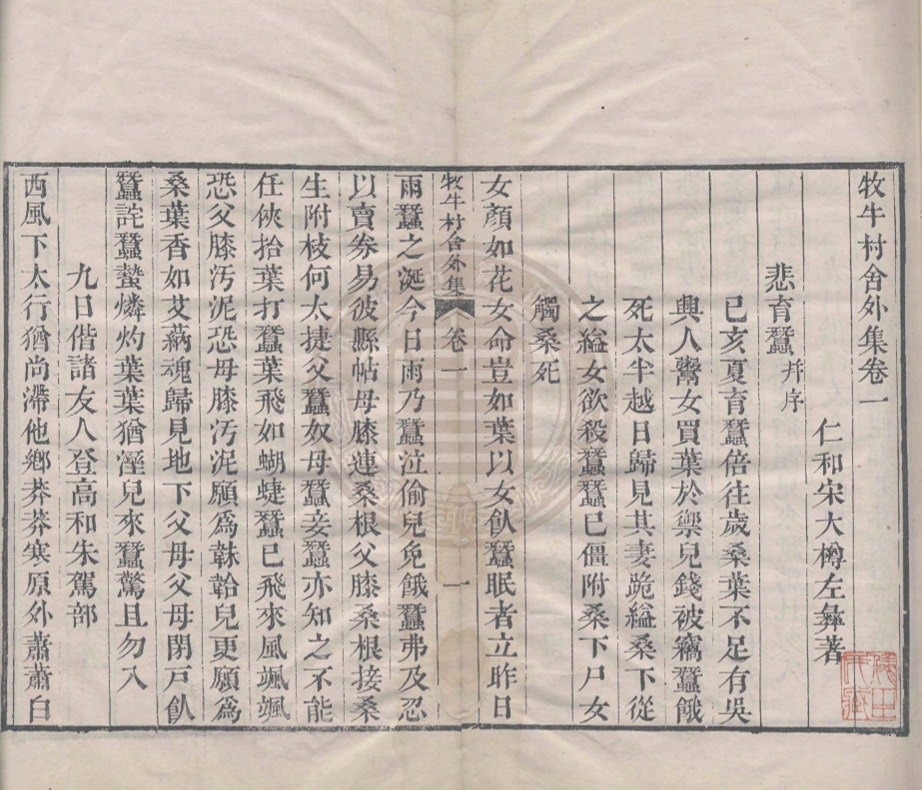 牧牛村舍外集卷一
仁和宋大樽左彝著
悲育蠶并序
己亥夏育蠶倍往歲桑葉不足有吳
興人鬻女買葉於禦兒錢被竊蠶餓
死太半越日歸見其妻跪縊桑下從
之縊女欲殺蠶蠶已僵附桑下尸女
觸桑死
女顏如花女命豈如葉以女飤蠶眠者立昨日
牧牛村舍外集 卷一 一
雨蠶之涎今日雨乃蠶泣偷兒免餓蠶弗及忍
以賣券易彼縣帖母膝連桑根父膝桑根接桑
生附枝何太捷父蠶奴母蠶妾蠶亦知之不能
任俠拾葉打蠶葉飛如蝴蜨蠶已飛來風颯颯
恐父膝汚泥恐母膝汚泥願爲韎韐兒更願爲
桑葉香如艾蒳魂歸見地下父母父母閉戸飤
蠶詫蠶蟄燐灼葉葉猶溼兒來蠶驚且勿入
九日偕諸友人登高和朱駕部
西風下太行猶尚滯他鄉莽莽寒原外蕭蕭白